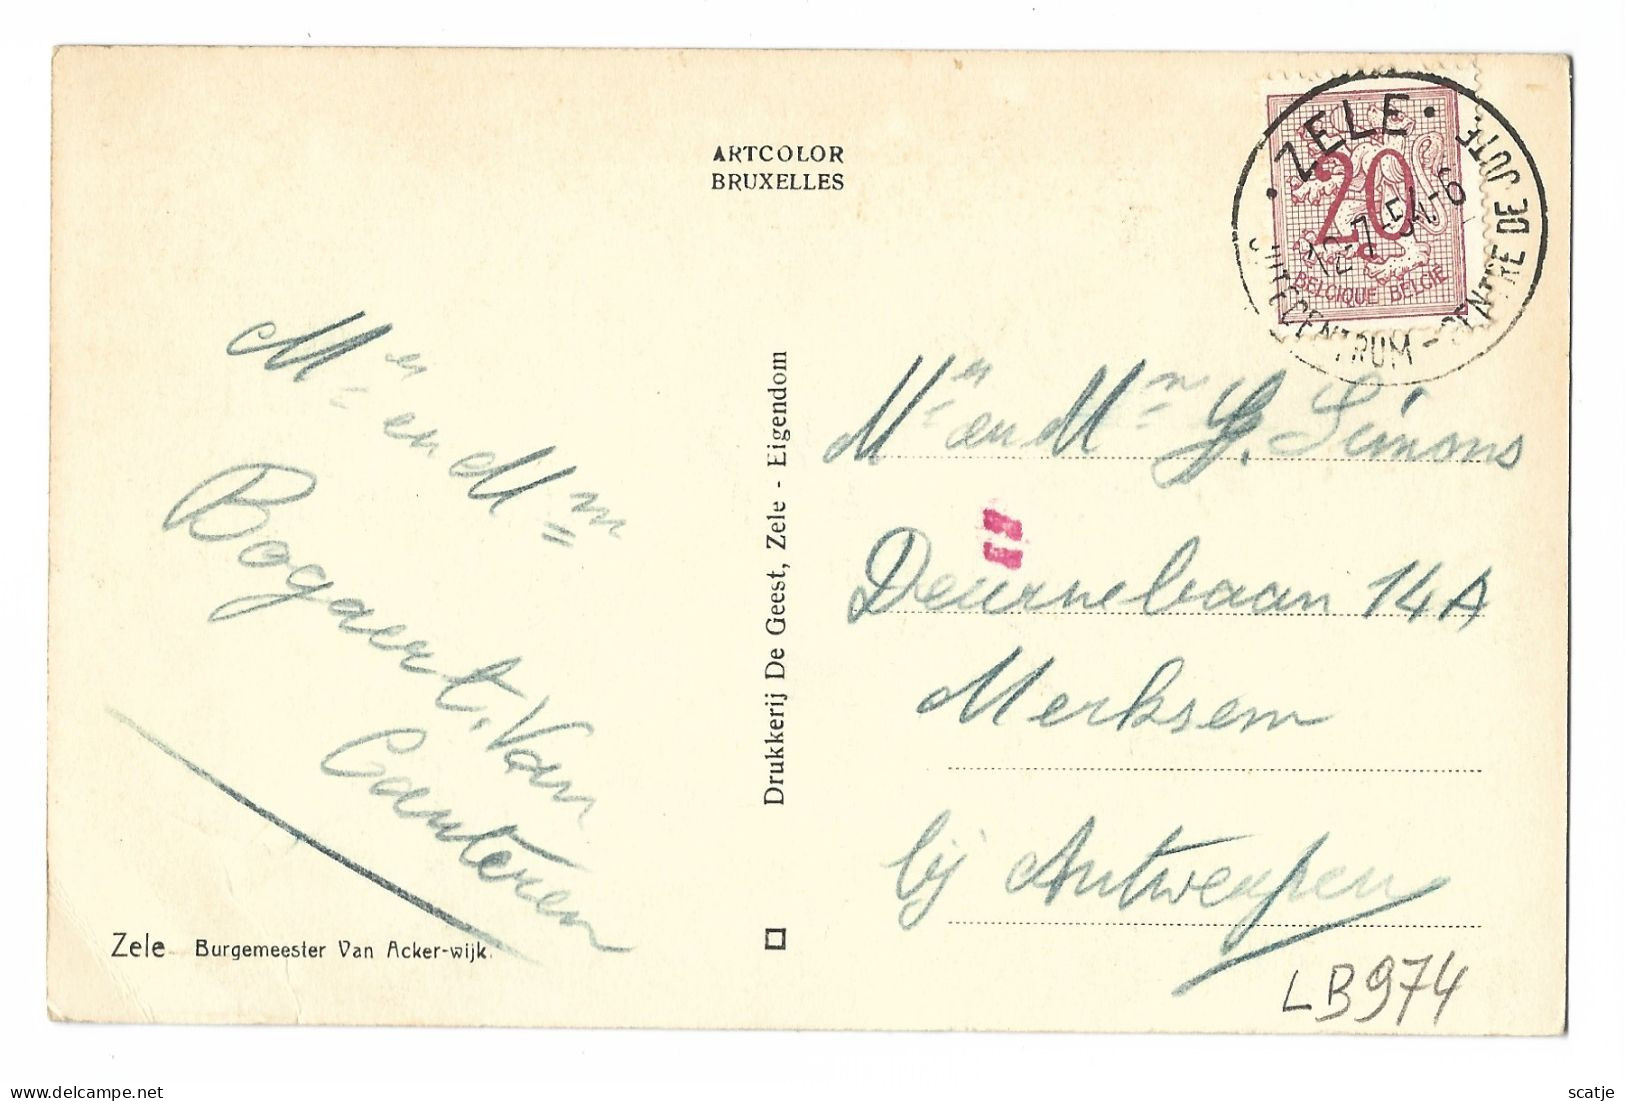 ARTCOLOR
BRUXELLES
• ZELE •
JUTECENTRUM - CENTRE DE JUTE
12-7-54-6
20
BELGIQUE BELGIË
Mr en Mm
Bogaert, Van
Cauteren
Zele Burgemeester Van Acker-wijk.
Drukkerij De Geest, Zele - Eigendom
Mr en Mn G. Simons
Deurnebaan 14A
Merksem
bij Antwerpen
LB974
scatje